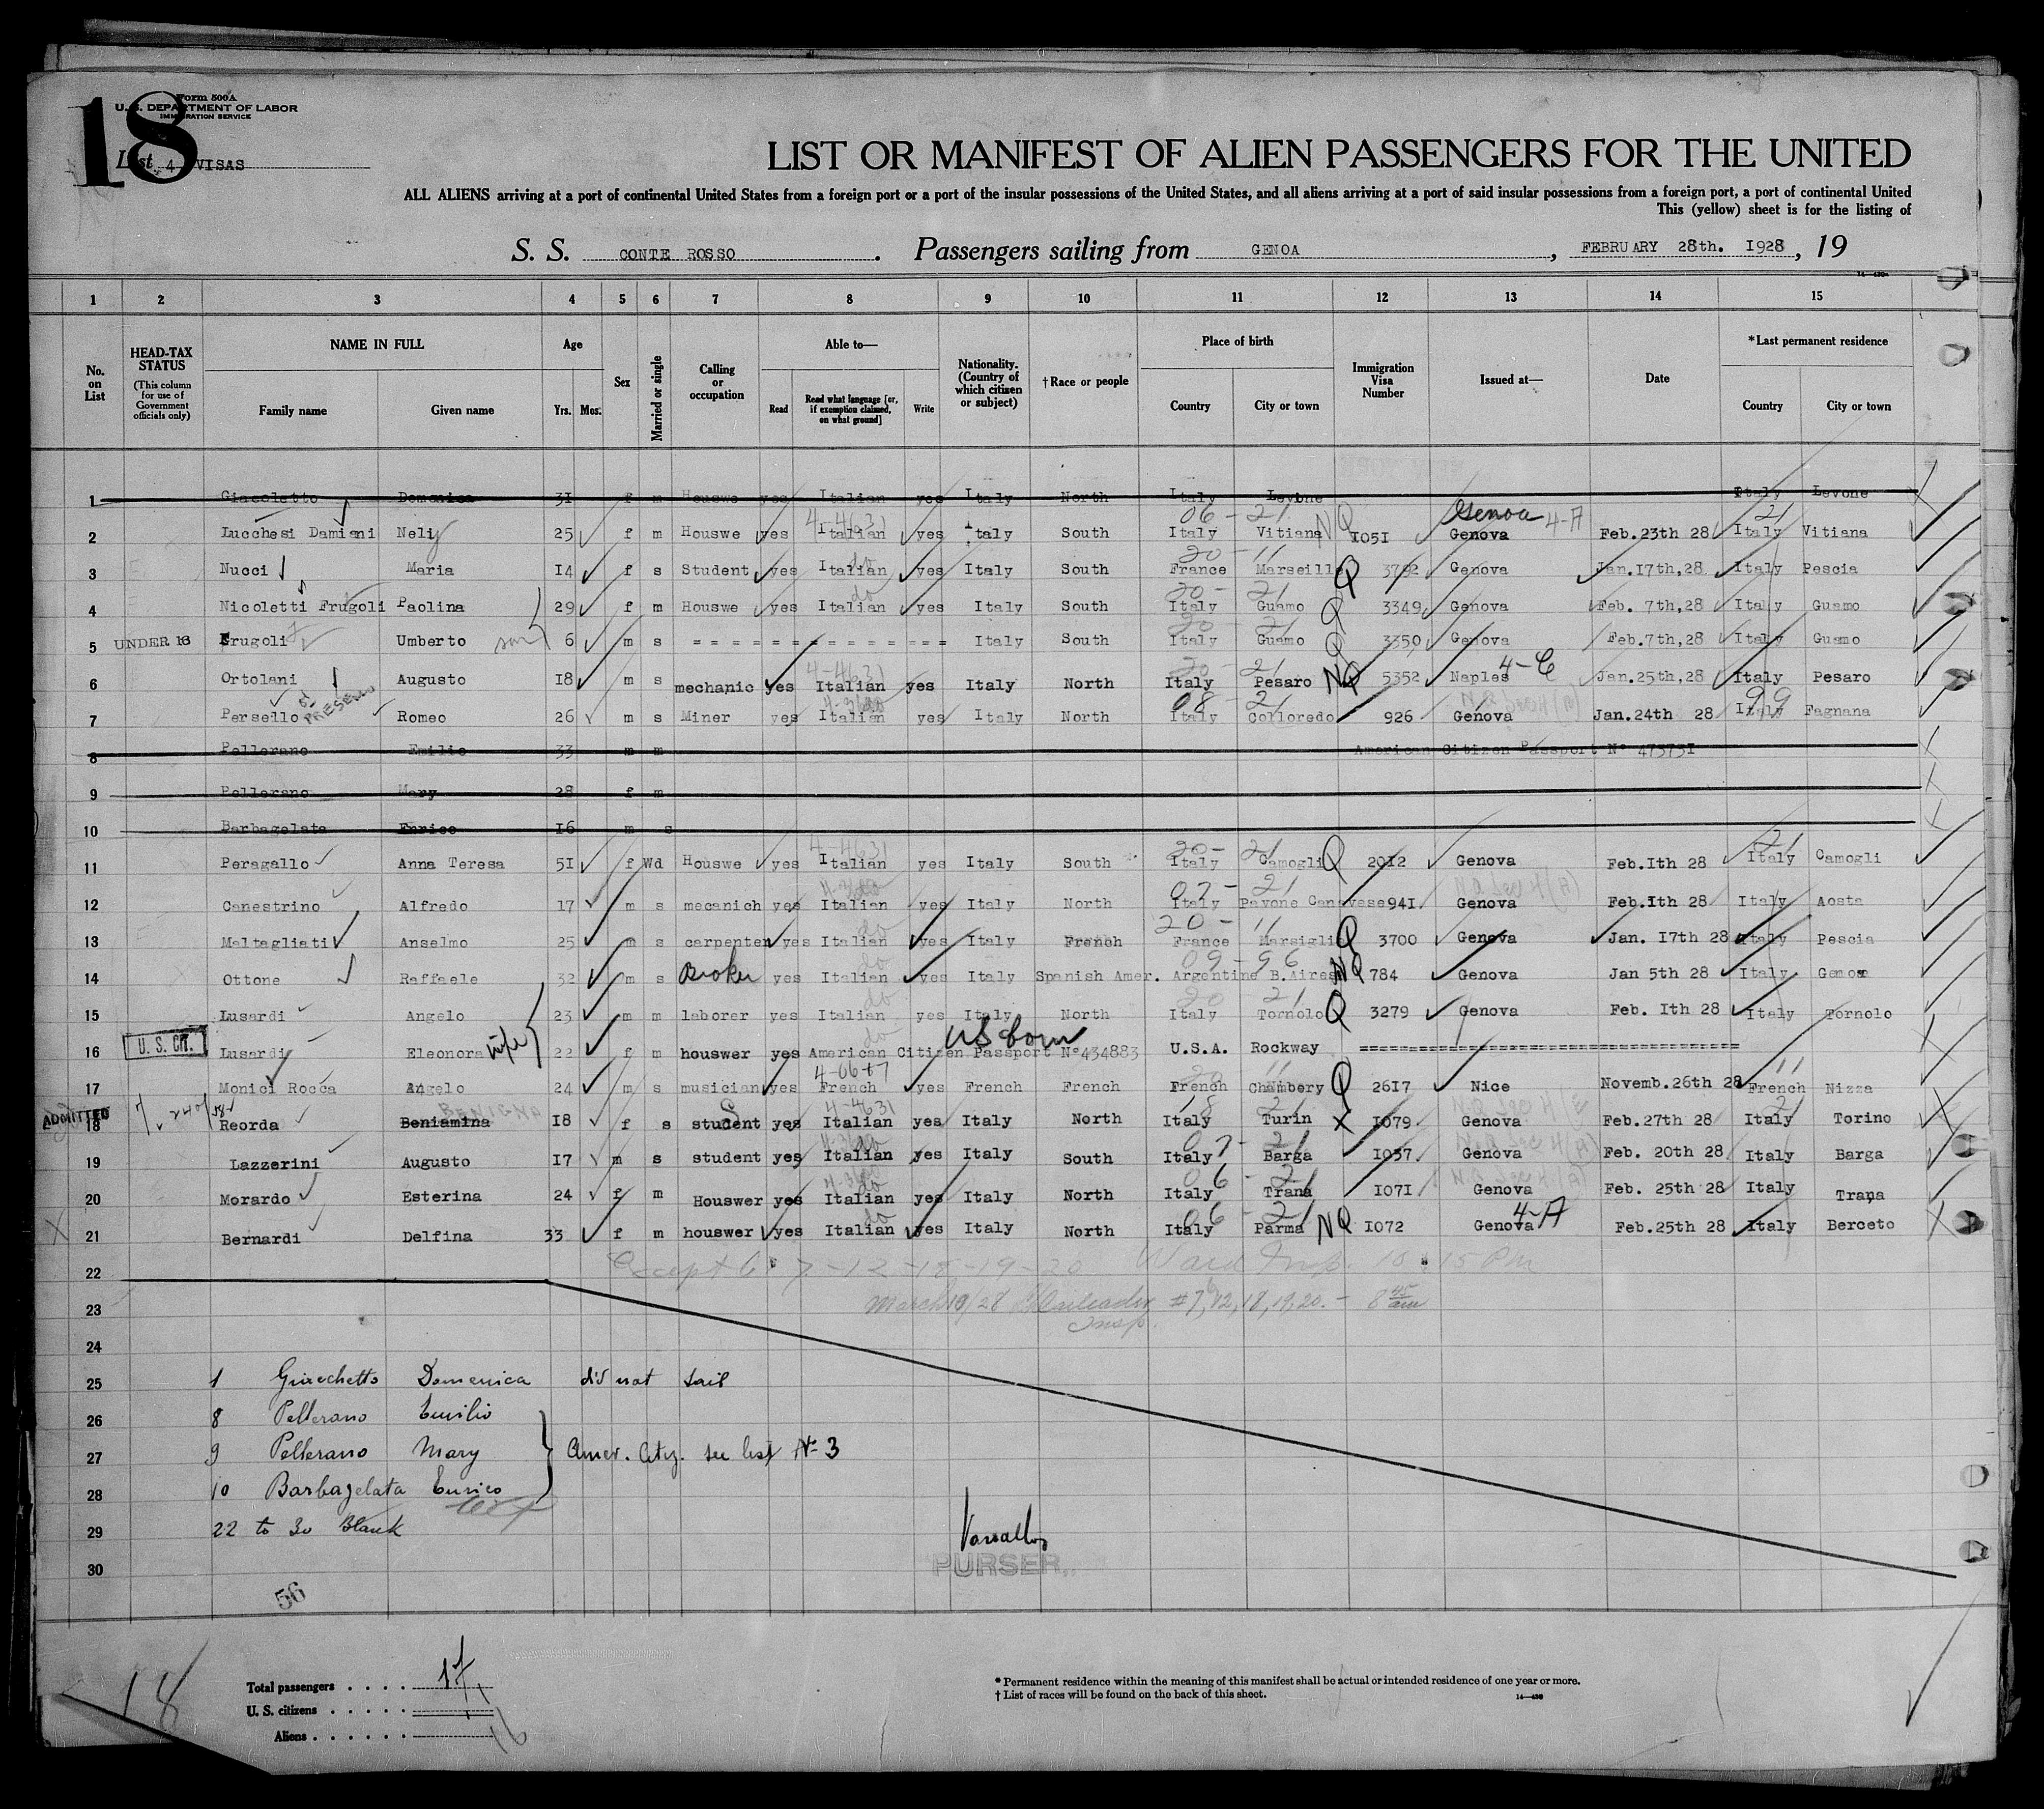 18
Form 500A
U. S. DEPARTMENT OF LABOR
IMMIGRATION SERVICE
List 4 VISAS
LIST OR MANIFEST OF ALIEN PASSENGERS FOR THE UNITED
ALL ALIENS arriving at a port of continental United States from a foreign port or a port of the insular possessions of the United States, and all aliens arriving at a port of said insular possessions from a foreign port, a port of continental United
This (yellow) sheet is for the listing of
S. S. CONTE ROSSO. Passengers sailing from GENOA, FEBRUARY 28th. 1928, 19
1 2 3 4 5 6 7 8 9 10 11 12 13 14 15
No. on List
HEAD-TAX STATUS (This column for use of Government officials only)
NAME IN FULL Family name Given name
Age Yrs. Mos.
Sex
Married or single
Calling or occupation
Able to— Read Read what language [or, if exemption claimed, on what ground] Write
Nationality. (Country of which citizen or subject)
† Race or people
Place of birth Country City or town
Immigration Visa Number
Issued at—
Date
* Last permanent residence Country City or town
1 Giacoletto Domenica 31 f m Houswe yes Italian yes Italy North Italy Levone Italy Levone
06 - 21 NQ Genoa 4-A 21
2 Lucchesi Damiani Nelly 25 f m Houswe yes Italian yes Italy South Italy Vitiana 1051 Genova Feb.23th 28 Italy Vitiana
3 Nucci Maria 14 f s Student yes Italian yes Italy South France Marseille Q 3792 Genova Jan.17th,28 Italy Pescia
4 Nicoletti Frugoli Paolina 29 f m Houswe yes Italian yes Italy South Italy Guamo Q 3349 Genova Feb. 7th,28 Italy Guamo
5 UNDER 16 Frugoli Umberto son 6 m s = = = = = = = = = = = = Italy South Italy Guamo Q 3350 Genova Feb.7th,28 Italy Guamo
6 Ortolani Augusto 18 m s mechanic yes Italian yes Italy North Italy Pesaro NQ 5352 Naples 4-C Jan.25th,28 Italy Pesaro
7 Persello or PRESELLO Romeo 26 m s Miner yes Italian yes Italy North Italy Colloredo 926 Genova Jan.24th 28 Italy Fagnana
8 Pellerano Emilio 33 m m American Citizen Passport N° 473731
9 Pellerano Mary 28 f m
10 Barbagelata Enrico 16 m s
11 Peragallo Anna Teresa 51 f Wd Houswe yes Italian yes Italy South Italy Camogli Q 2012 Genova Feb.1th 28 Italy Camogli
12 Canestrino Alfredo 17 m s mecanich yes Italian yes Italy North Italy Pavone Canavese 941 Genova Feb.1th 28 Italy Aosta
13 Maltagliati Anselmo 25 m s carpenter yes Italian yes Italy French France Marsiglia Q 3700 Genova Jan. 17th 28 Italy Pescia
14 Ottone Raffaele 32 m s Broker yes Italian yes Italy Spanish Amer. Argentine B.Aires NQ 784 Genova Jan 5th 28 Italy Genoa
15 Lusardi Angelo 23 m m laborer yes Italian yes Italy North Italy Tornolo Q 3279 Genova Feb. 1th 28 Italy Tornolo
US born
16 U. S. CIT. Lusardi Eleonora wife 22 f m houswer yes American Citizen Passport N°434883 U.S.A. Rockway ====================
4-0617
17 Monici Rocca Angelo 24 m s musician yes French yes French French French Chambery Q 2617 Nice Novemb.26th 28 French Nizza
BENIGNA
18 ADMITTED Reorda Beniamina 18 f s student yes Italian yes Italy North Italy Turin X 1079 Genova Feb.27th 28 Italy Torino
19 Lazzerini Augusto 17 m s student yes Italian yes Italy South Italy Barga 1037 Genova Feb. 20th 28 Italy Barga
20 Morardo Esterina 24 f m Houswer yes Italian yes Italy North Italy Trana 1071 Genova Feb. 25th 28 Italy Trana
21 Bernardi Delfina 33 f m houswer yes Italian yes Italy North Italy Parma NQ 1072 Genova 4-A Feb.25th 28 Italy Berceto
22 Except 6-7-12-18-19-20 Ward Insp. 10.15 PM
23 March 10/28 #7, 12, 18, 19, 20. - 8 45 am
Insp.
24
25 1 Giacchetto Domenica did not sail
26 8 Pellerano Emilio
27 9 Pellerano Mary Amer. Citz. see list No 3
28 10 Barbagelata Enrico
29 22 to 30 Blank
PURSER.
30
56
18
Total passengers . . . . 17
U. S. citizens . . . . . 1
Aliens . . . . . . 16
* Permanent residence within the meaning of this manifest shall be actual or intended residence of one year or more.
† List of races will be found on the back of this sheet.
14—430